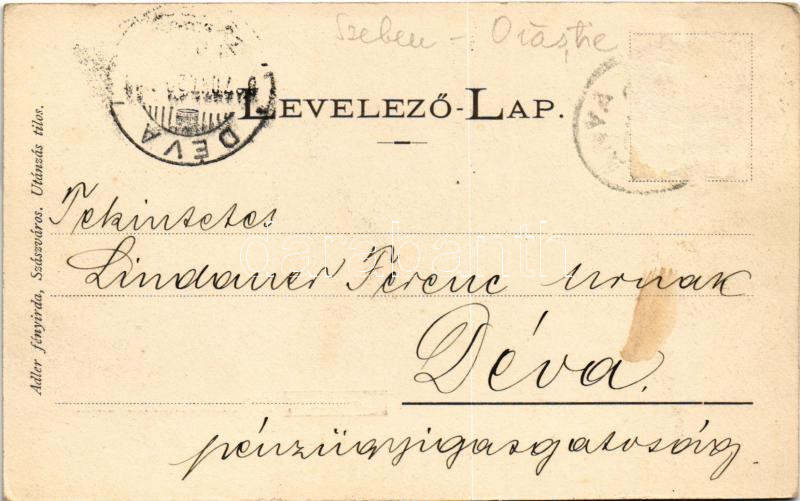 Szeben - Orăştie
LEVELEZŐ-LAP.
DÉVA
DÉVA
Tekintetes
Lindauer Ferenc urnak
Déva.
pénzügyigazgatóság
Adler fényirda, Szászváros. Utánzás tilos.
darabanth